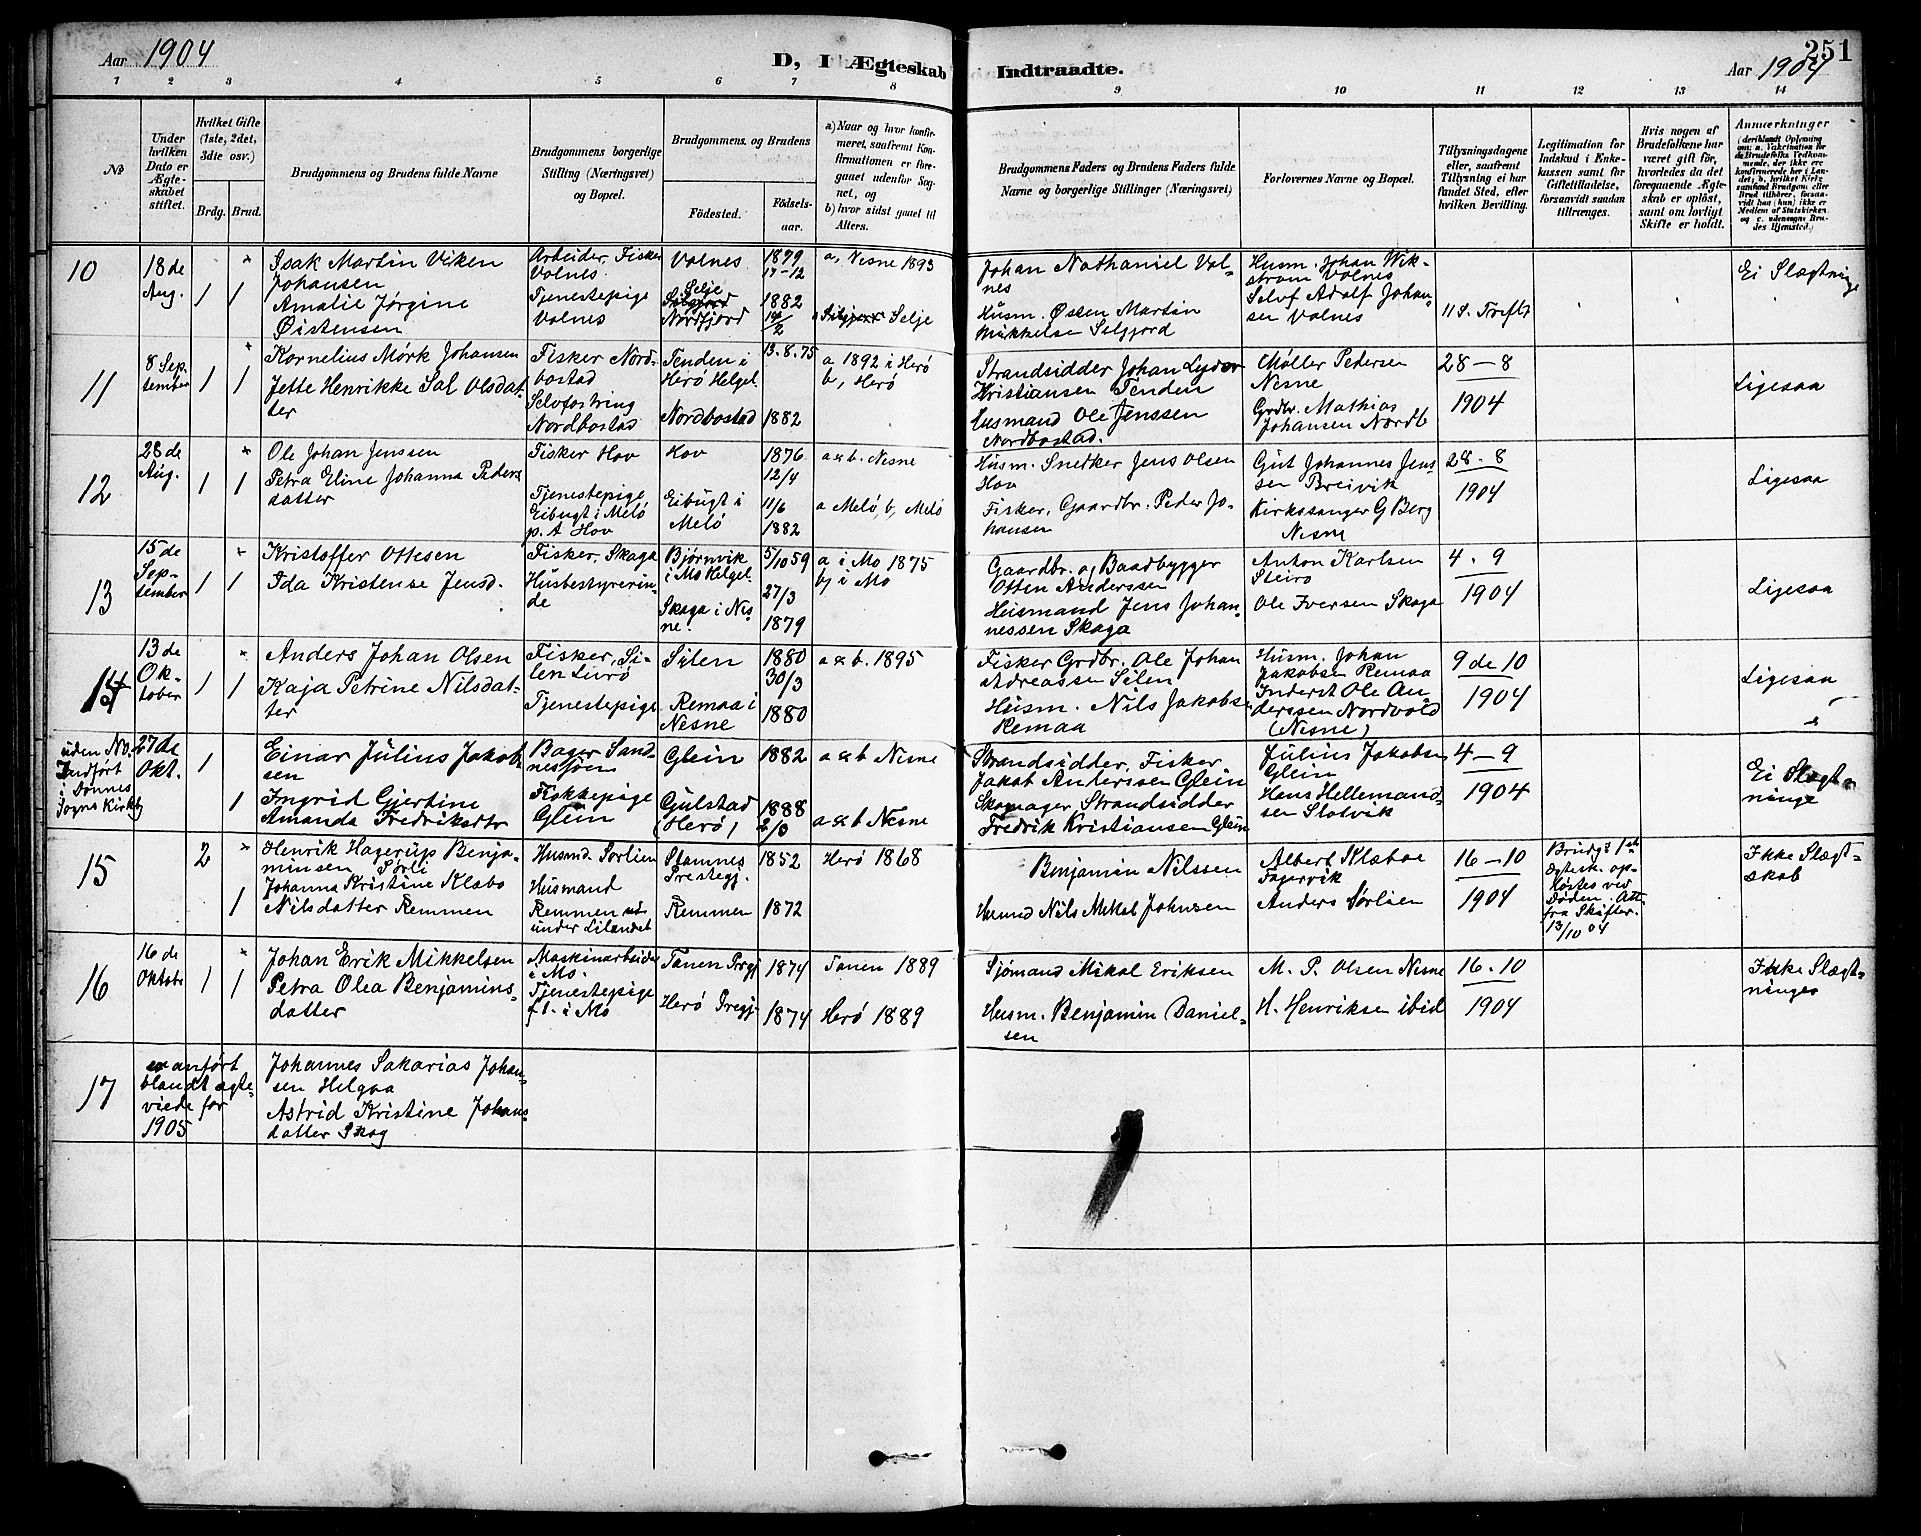 Aar 1904
D, I Ægteskab
Indtraadte.
251
Aar 1904
1 2 3 4 5 6 7 8 9 10 11 12 13 14
No
Under
hvilken
Dato er
Ægte-
skabet
stiftet.
Hvilket Gifte
(1ste, 2det,
3die osv.)
Brdg. Brud.
Brudgommens og Brudens fulde Navne
Brudgommens borgerlige
Stilling (Næringsvei)
og Bopæl.
Brudgommens. og Brudens
Födested.
Födsels-
aar.
a) Naar og hvor konfir-
meret, saafremt Kon-
firmationen er fore-
gaaet udenfor Sog-
net, og
b) hvor sidst gaaet til
Alters.
Brudgommens Faders og Brudens Faders fulde
Navne og borgerlige Stillinger (Næringsvei)
Forlovernes Navne og Bopæl.
Tillysningsdagene
eller, saafremt
Tillysning ei har
fundet Sted, efter
hvilken Bevilling.
Legitimation for
Indskud i Enke-
kassen samt for
Giftetilladelse,
forsaavidt saadan
tiltrænges.
Hvis nogen af
Brudefolkene har
været gift før,
hvorledes da det
foregaaende Ægte-
skab er oplöst,
samt om lovligt
Skifte er holdt.
Anmærkninger
(deriblandt Oplysning
om: a. Vakcination for
de Brudefolks Vedkom-
mende, der ikke ere
konfirmerede her i Lan-
det; b. hvilket Kirke-
samfund Brudgom eller
Brud tilhörer, forsaa-
vidt han (hun) ikke er
Medlem af Statskirken
og c. udensogns Bru-
des Hjemsted.)
10
18 de
Aug.
1 1
Isak Martin Viken
Johansen
Amalie Jørgine
Øistensen
Arbeider, Fisker
Valnes
Tjenestepige
Valnes
Valnes
Selje
Nordfjord
1879
17-12
1882
14/2
a, Nesne 1893
Selje
Johan Nathaniel Val-
nes
Husm. Østen Martin
Mikkelse Seljord
Husm. Johan Wik-
strøm Valnes
Selvf Adolf Johan-
sen Valnes
11 S. Trefts
Ei Slægtninge
11
8 Sep-
tember
1 1
Kornelius Mörk Johansen
Jette Henrikke Sal Olsdat-
ter
Fisker Nord-
bostad
Selvfostring
Nordbostad
Tenden i
Herö Helgel.
Nordbostad
13.8.75
1882
a 1892 i Herö
b, Herö
Strandsidder Johan Lyder
Kristiansen Tenden
Husmand Ole Jenssen
Nordbostad.
Møller Pedersen
Nesne
Grdbr. Mathias
Johansen Nordb
28-8
1904
Ligesaa
12
28 de
Aug.
1 1
Ole Johan Jenssen
Petra Eline Johanna Peders
datter
Fisker Hov
Tjenestepige,
Eibugt i Melö
p. t Hov
Hov
Eibugt i
Melö
1876
12/4
11/6
1882
a & b. Nesne
a Melö, b, Melö
Husm. Snedker Jens Olsen
Hov
Fisker, Gaardbr. Peder Jo-
hansen
Gut Johannes Jens-
sen Breivik
Kirkesanger G Berg
Nesne
28.8
1904
Ligesaa
13
15 de
Sep-
tember
1 1
Kristoffer Ottesen
Ida Kristense Jensd.
Fisker, Skaga
Husbestyrerin-
de
Bjørnvik
i Mo Helgel.
Skaga i Nes
ne.
5/10 59
27/3
1879
a i Mo 1875
b, i Mo
Gaardbr. og Baadbygger
Otten Anderssen
Husmand Jens Johan-
nessen Skaga
Anton Karlsen
Steiro
Ole Iversen Skaga
4.9
1904
Ligesaa
14
13 de
Ok-
tober
1 1
Anders Johan Olsen
Kaja Petrine Nilsdat-
ter
Fisker, Si-
len Lurö
Tjenestepige
Silen
Remaa i
Nesne
1880
30/3
1880
a & b. 1895
Fisker Grdbr. Ole Johan
Andreassen Silen
Husm. Nils Jakobse
Remaa
Husm. Johan
Jakobsen Remaa
Inderst Ole An
derssen Nordvold
(Nesne)
9 de 10
1904
Ligesaa
uden No.
Indført
i Dønnes
Sogns Kirkeb
27 de
Okt.
1
1
Einar Julius Jakob-
sen
Ingrid Gjertine
Amanda Fredriksdtr
Bager Sand-
nessjøen
Kokkepige
Glein
Glein
Gulstad
(Herö)
1882
1888
a & b Nesne
a & b Nesne
Strandsidder, Fisker
Jakob Anderssen Glein
Skomager, Strandsidder
Fredrik Kristiansen Glein
Julius Jakobsen
Glein
Hans Hellemand-
sen Slotvik
4-9
1904
Ei Slægt-
ninge
15
2
1
Henrik Hagerup Benja-
minsen Sørli
Johanna Kristine Klæbo
Nilsdatter Remmen
Husmd. Sorlien
Husmand
Remmen
under Lilandet
Stamnes
Prestegj.
Remmen
1852
1872
Herö 1868
Benjamin Nilssen
Husmd Nils Mikal Johnsen
Albert Klæboe
Fagervik
Anders Sørlien
16-10
1904
Brudg's 1ste
Ægtesk. op-
løstes ved
Døden. Att
fra Skifter.
13/10 04
Ikke Slægt-
skab
16
16 de
Oktobr
1 1
Johan Erik Mikkelsen
Petra Olea Benjamins-
datter
Maskinarbeider
i Mo.
Tjenestepige
ft. i Mo
Tanen Prgj
Herö Pregj.
1874
1874
Tanen 1889
Herö 1889
Sjömand Mikal Eriksen
Husm. Benjamin Daniel-
sen
M. P. Olsen Nesne
H. Henriksen ibid
16.10
1904
Ikke Slægt-
ninger
17
er anført
blandt ægte-
viede for
1905
Johannes Sakarias Johan-
sen Helgaa
Astrid Kristine Johans-
datter Skog